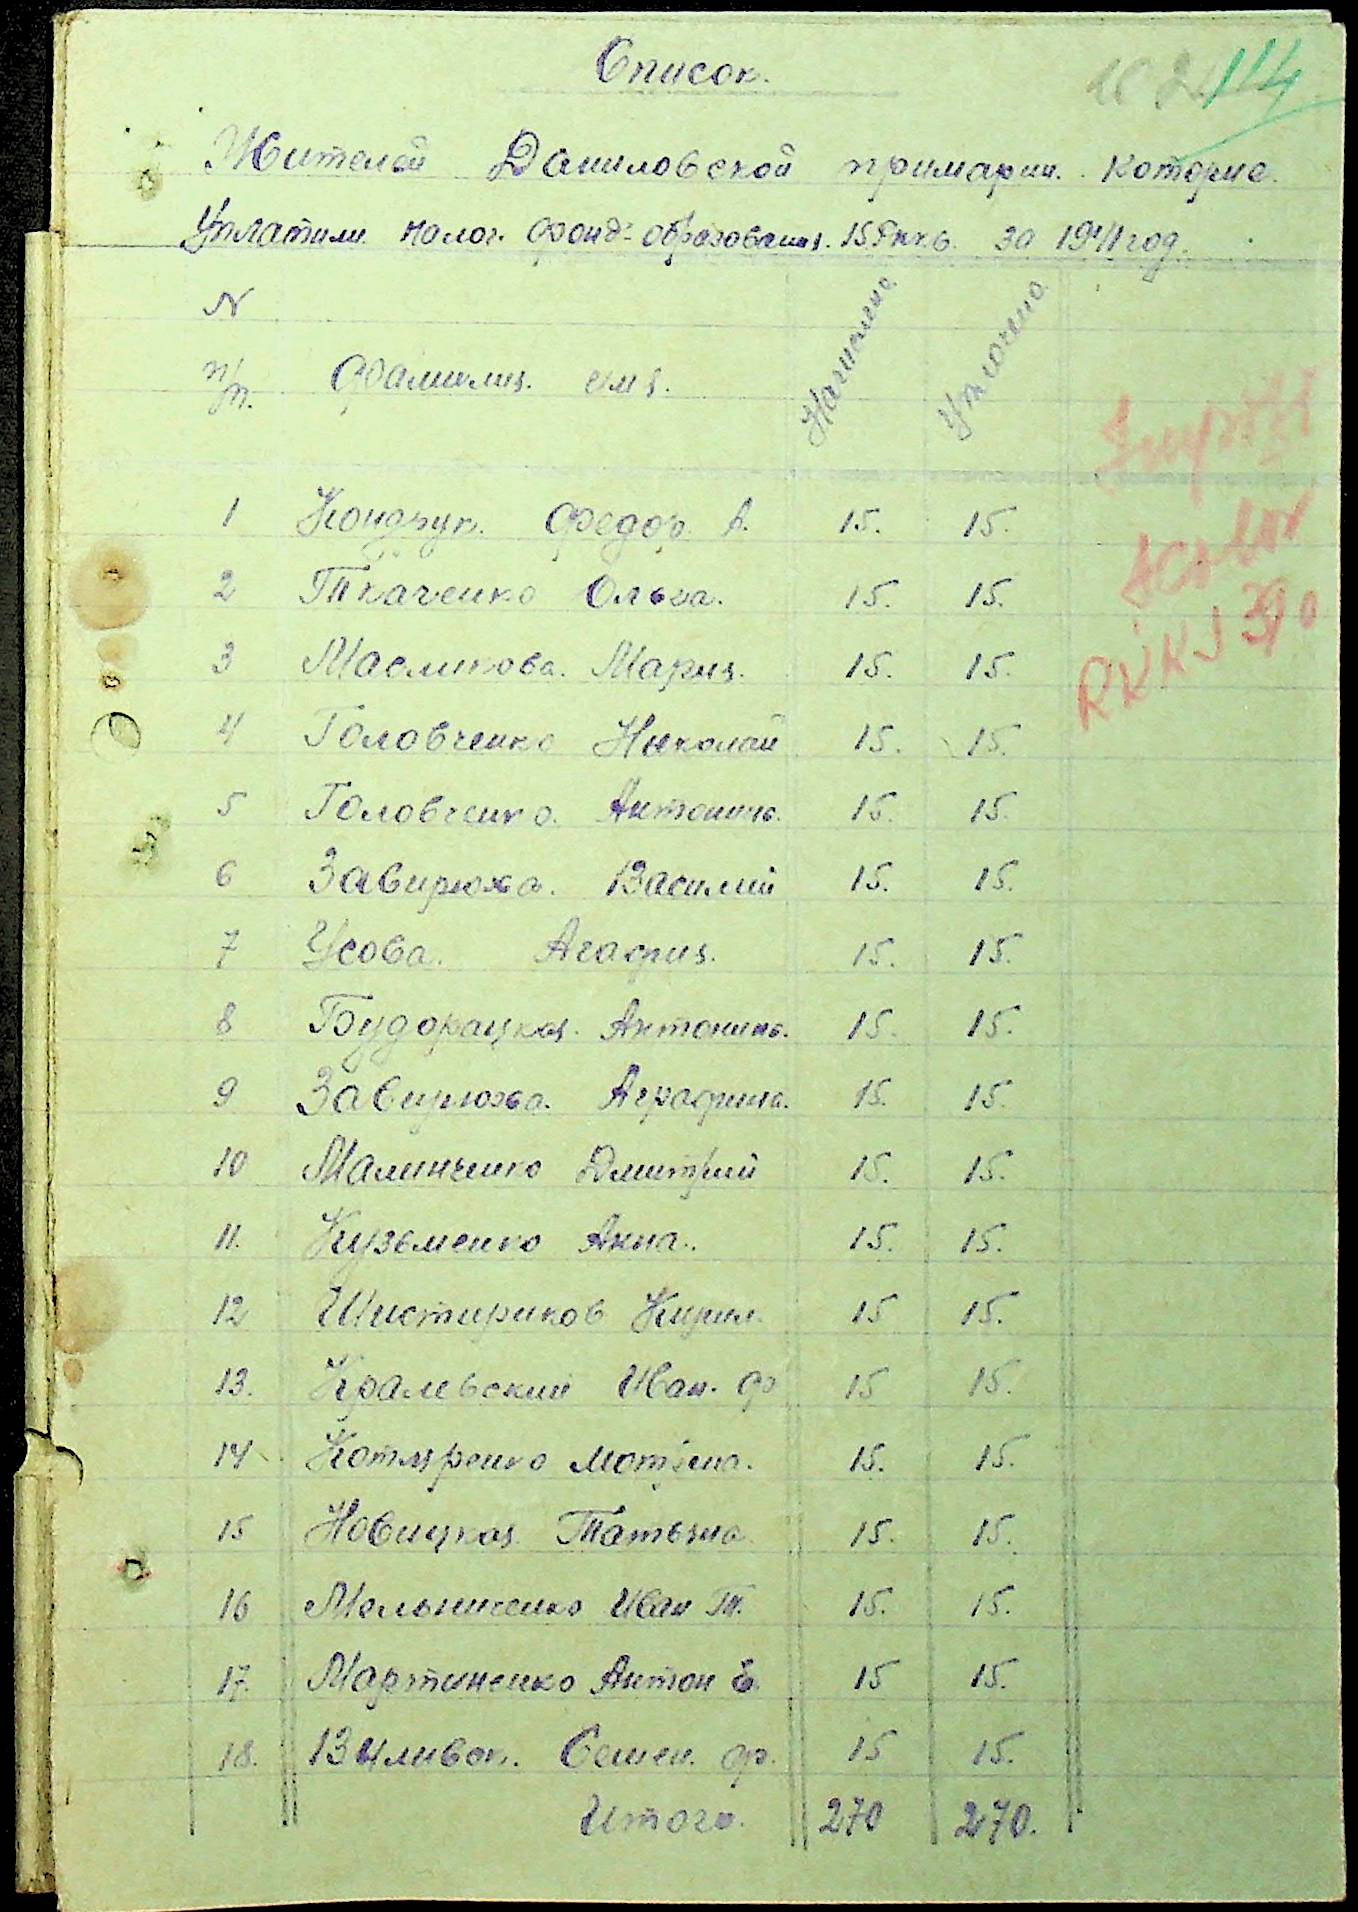 Список.
114
Жителей Даниловской примарии. Которые.
Уплатили налог. фонд-образования. 15 Rкк в. за 1941 год.
N
п/п. Фамилия. имя. Начислено. Уплочено.
1 Кондрук. Федор. А. 15. 15.
2 Ткаченко Ольга. 15. 15.
3 Масликова. Мария. 15. 15.
4 Головченко Николай 15. 15.
5 Головченко. Антонина. 15. 15.
6 Завирюха. Василий 15. 15.
7 Усова. Агафия. 15. 15.
8 Будорацкая. Антонина. 15. 15.
9 Завирюха. Аграфина. 15. 15.
10 Малинченко Дмитрий 15. 15.
11. Кузьменко Анна. 15. 15.
12 Шистириков Кирил. 15 15.
13. Кралевский Иван. Ф 15 15.
14 Котляренко Мотрена. 15. 15.
15 Новицкая Татьяна. 15. 15.
16 Мельниченко Иван Т. 15. 15.
17. Мартиненко Антон Е. 15 15.
18. Вцливок. Семен. Ф. 15 15.
Итого. 270 270.